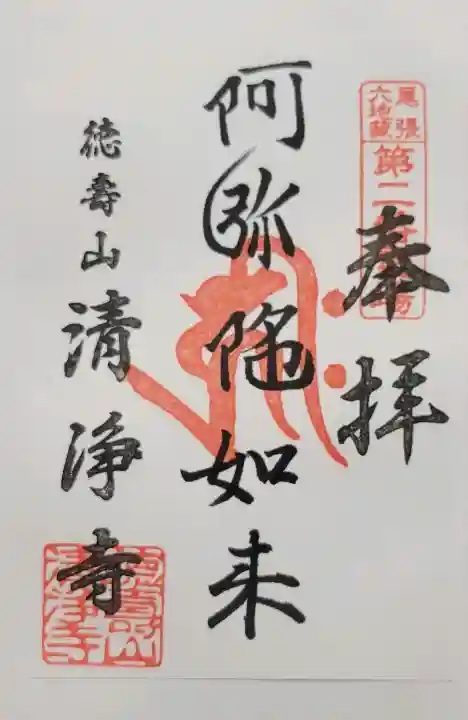 尾張
六地蔵
第二
奉拝
阿弥陀如来
徳壽山清浄寺